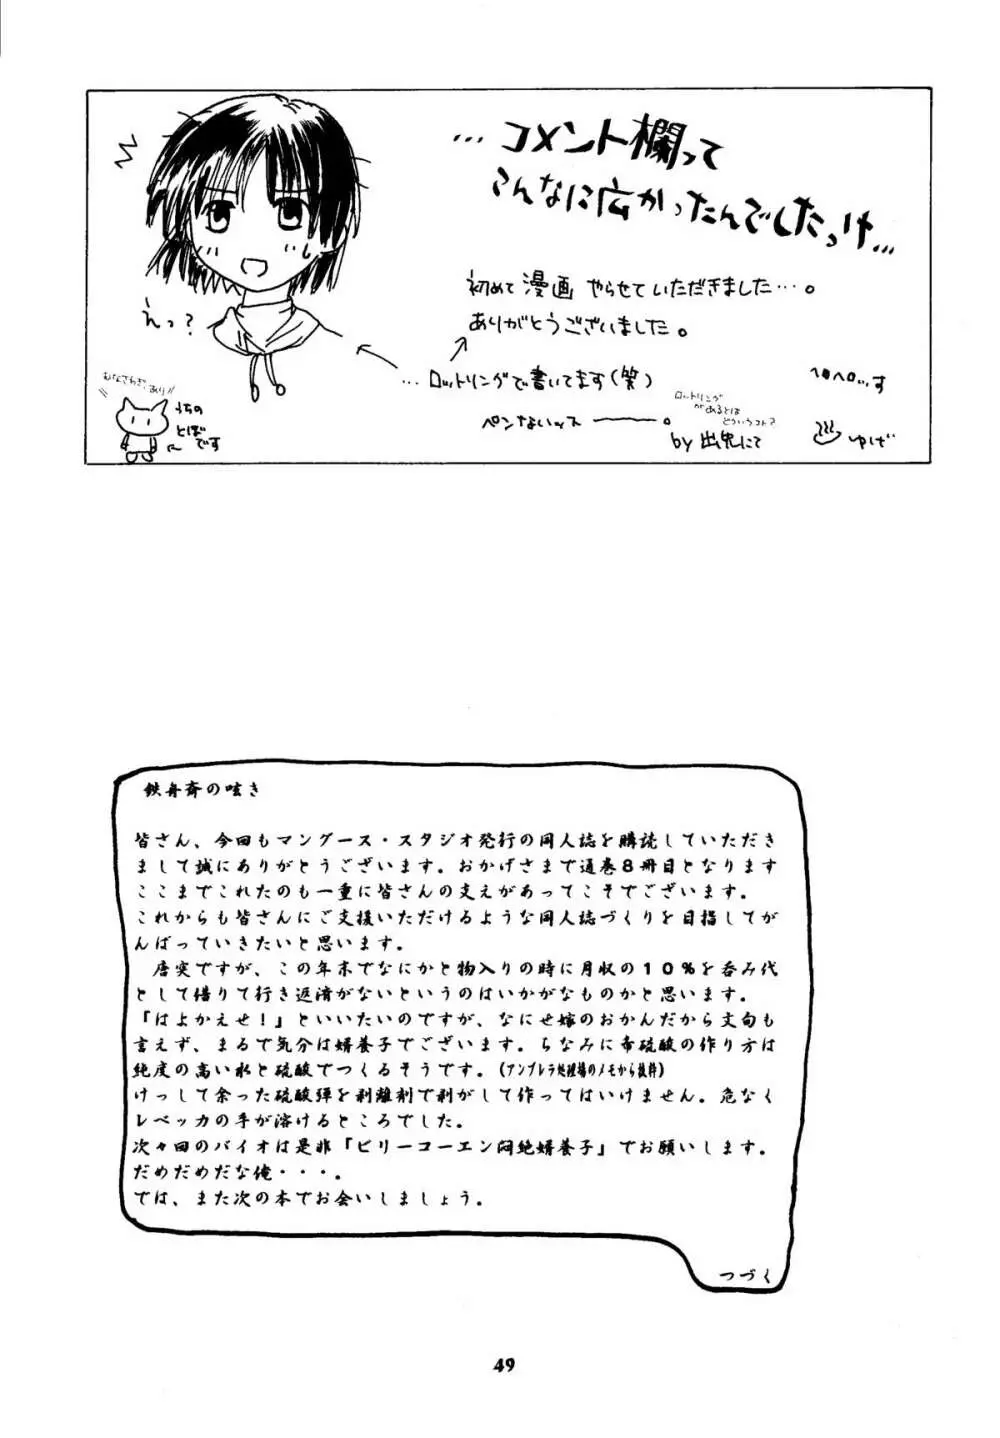 …コメント欄って
こんなに広かったんでしたっけ…
初めて漫画やらせていただきました…。
ありがとうございました。
えっ？
…ロットリングで書いてます(笑)
ペンないッス――。
ロットリング
があるとは
どういうコト？
ヘロヘロっす
by 出兎にて
ゆげ
むなさわぎ、あり!!
うちの
とぼ
です
鉄舟斎の呟き
皆さん、今回もマングース・スタジオ発行の同人誌を購読していただき
まして誠にありがとうございます。おかげさまで通巻８冊目となります
ここまでこれたのも一重に皆さんの支えがあってこそでございます。
これからも皆さんにご支援いただけるような同人誌づくりを目指してが
んばっていきたいと思います。
唐突ですが、この年末でなにかと物入りの時に月収の１０％を呑み代
として借りて行き返済がないというのはいかがなものかと思います。
『はよかえせ！』といいたいのですが、なにせ嫁のおかんだから文句も
言えず、まるで気分は婿養子でございます。ちなみに希硫酸の作り方は
純度の高い水と硫酸でつくるそうです。(アンブレラ処理場のメモから抜粋)
けっして余った硫酸弾を剥離剤で剥がして作ってはいけません。危なく
レベッカの手が溶けるところでした。
次々回のバイオは是非「ビリーコーエン悶絶婿養子」でお願いします。
だめだめだな俺・・・。
では、また次の本でお会いしましょう。
つづく
49